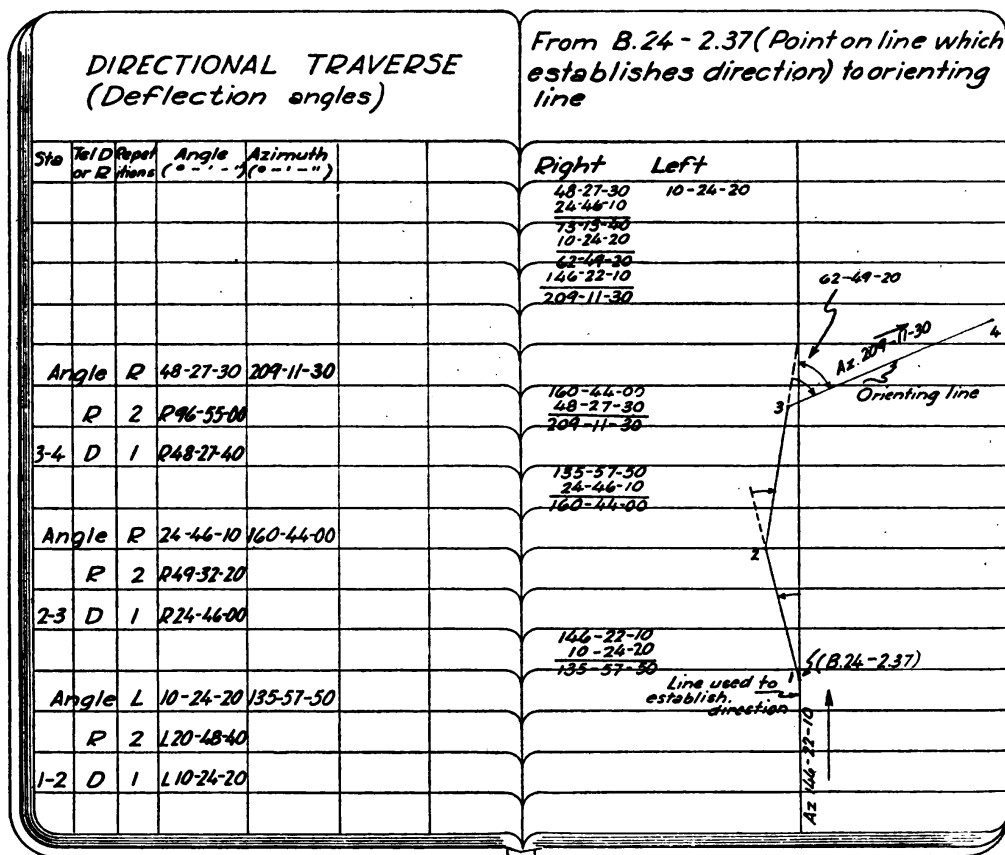 DIRECTIONAL TRAVERSE
(Deflection angles)
Sta Tel D or R Repetitions Angle (° - ' - ") Azimuth (° - ' - ")
Angle R 48-27-30 209-11-30
R 2 R96-55-00
3-4 D 1 R48-27-40
Angle R 24-46-10 160-44-00
R 2 R49-32-20
2-3 D 1 R24-46-00
Angle L 10-24-20 135-57-50
R 2 L20-48-40
1-2 D 1 L10-24-20
From B.24 - 2.37 (Point on line which
establishes direction) to orienting
line
Right Left
48-27-30 10-24-20
24-46-10
73-13-40
10-24-20
62-49-20
146-22-10
209-11-30
62-49-20
4
Az. 209-11-30
Orienting line
3
160-44-00
48-27-30
209-11-30
135-57-50
24-46-10
160-44-00
2
146-22-10
10-24-20
135-57-50
1
(B.24-2.37)
Line used to
establish.
direction
Az 146-22-10